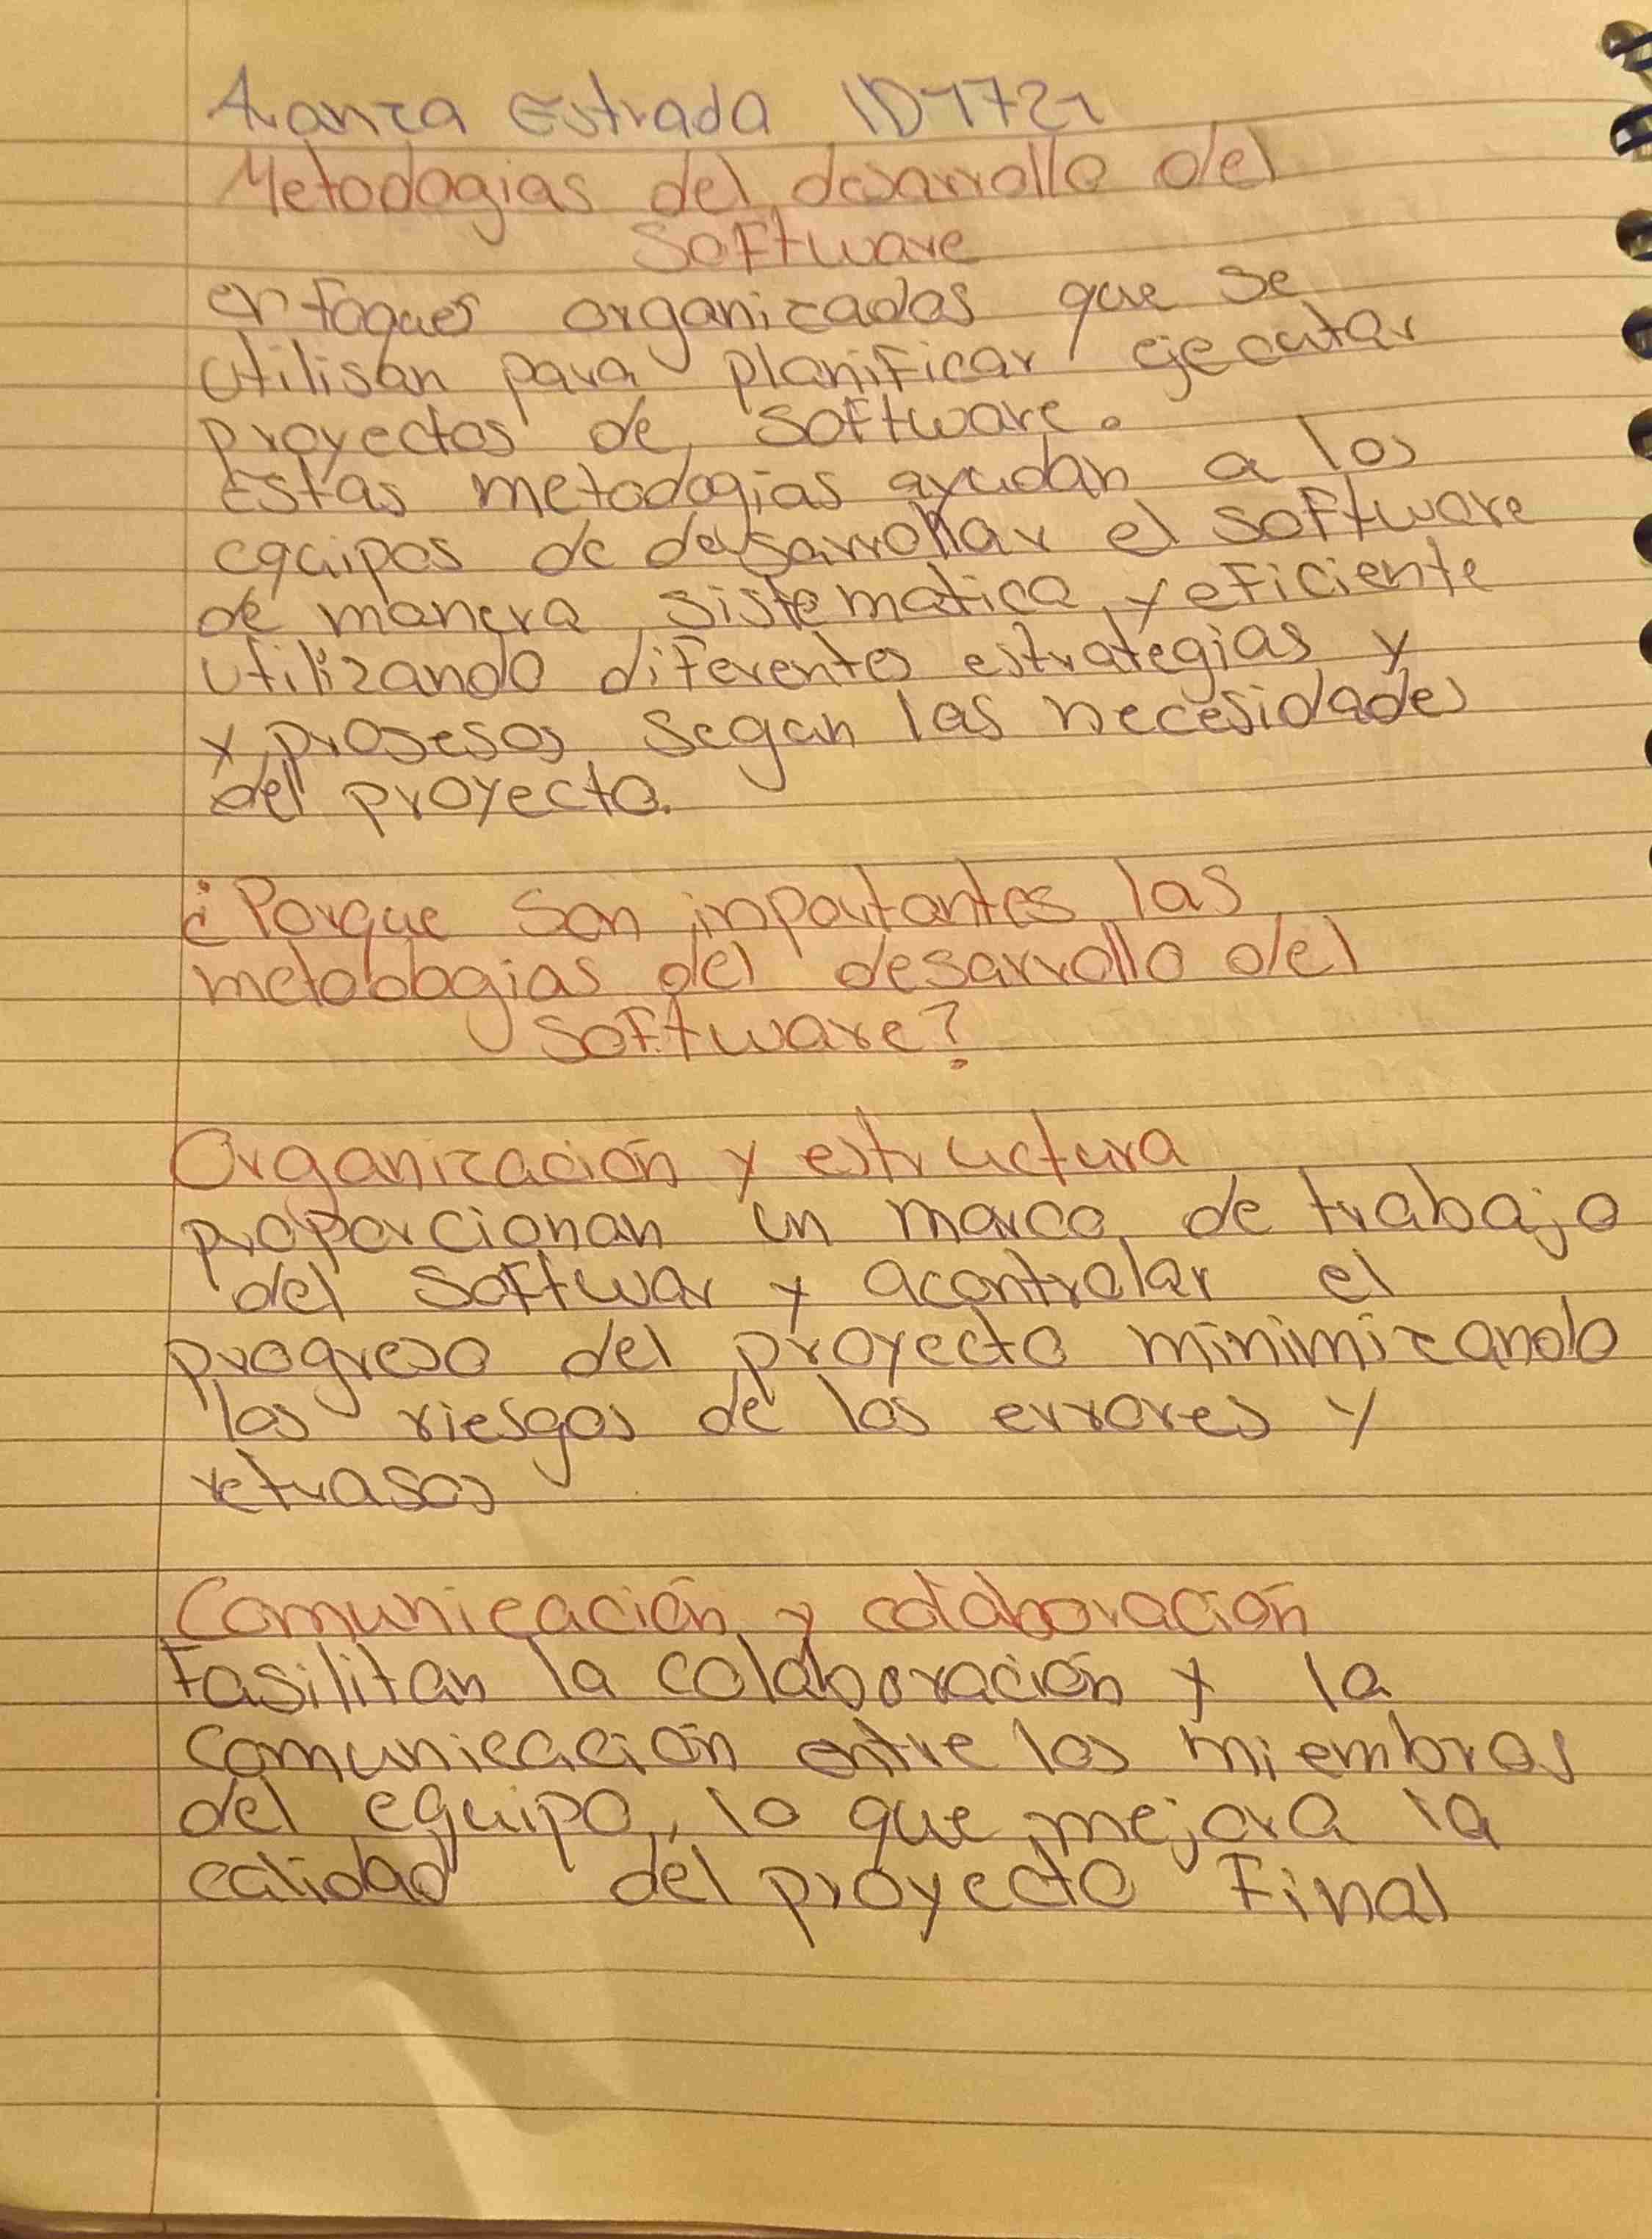 Estrada
Metodogias del desarrollo del
Software
enfoques organizados que se
utilisan para planificar ejecutar
proyectos de software.
Estas metodogias ayudan a los
equipos de desarrollar el software
de manera sistematica y eficiente
utilizando diferentes estrategias y
y prosesos segun las necesidades
del proyecto.
¿Porque son importantes las
metodologias del desarrollo del
software?
Organización y estructura
proporcionan un marco de trabajo
del softwar y acontrolar el
progreso del proyecto minimizando
los riesgos de los errores y
retrasos
Comunicación y colaboración
Fasilitan la colaboración y la
comunicación entre los miembros
del equipo, lo que mejora la
calidad del proyecto Final